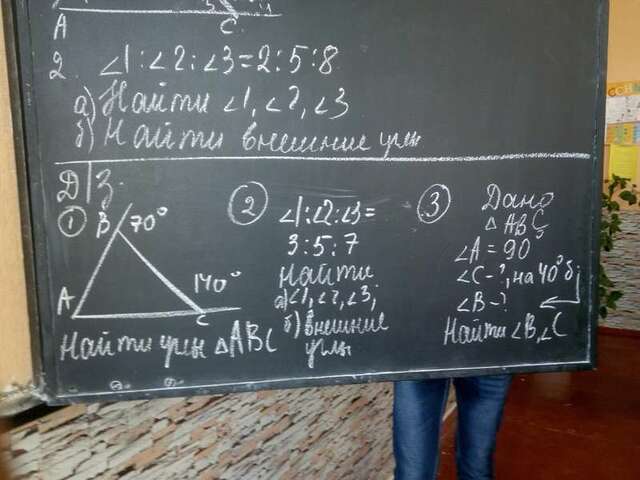 A C
2. ∠1:∠2:∠3=2:5:8
а) Найти ∠1, ∠2, ∠3
б) Найти внешние углы
Д/З.
① B 70°
140°
A C
Найти углы △ABC
② ∠1:∠2:∠3=
3:5:7
Найти
а) ∠1, ∠2, ∠3;
б) внешние
углы
③ Дано
△ABC;
∠A = 90
∠C - ?, на 40° б
∠B - ?
Найти ∠B, ∠C